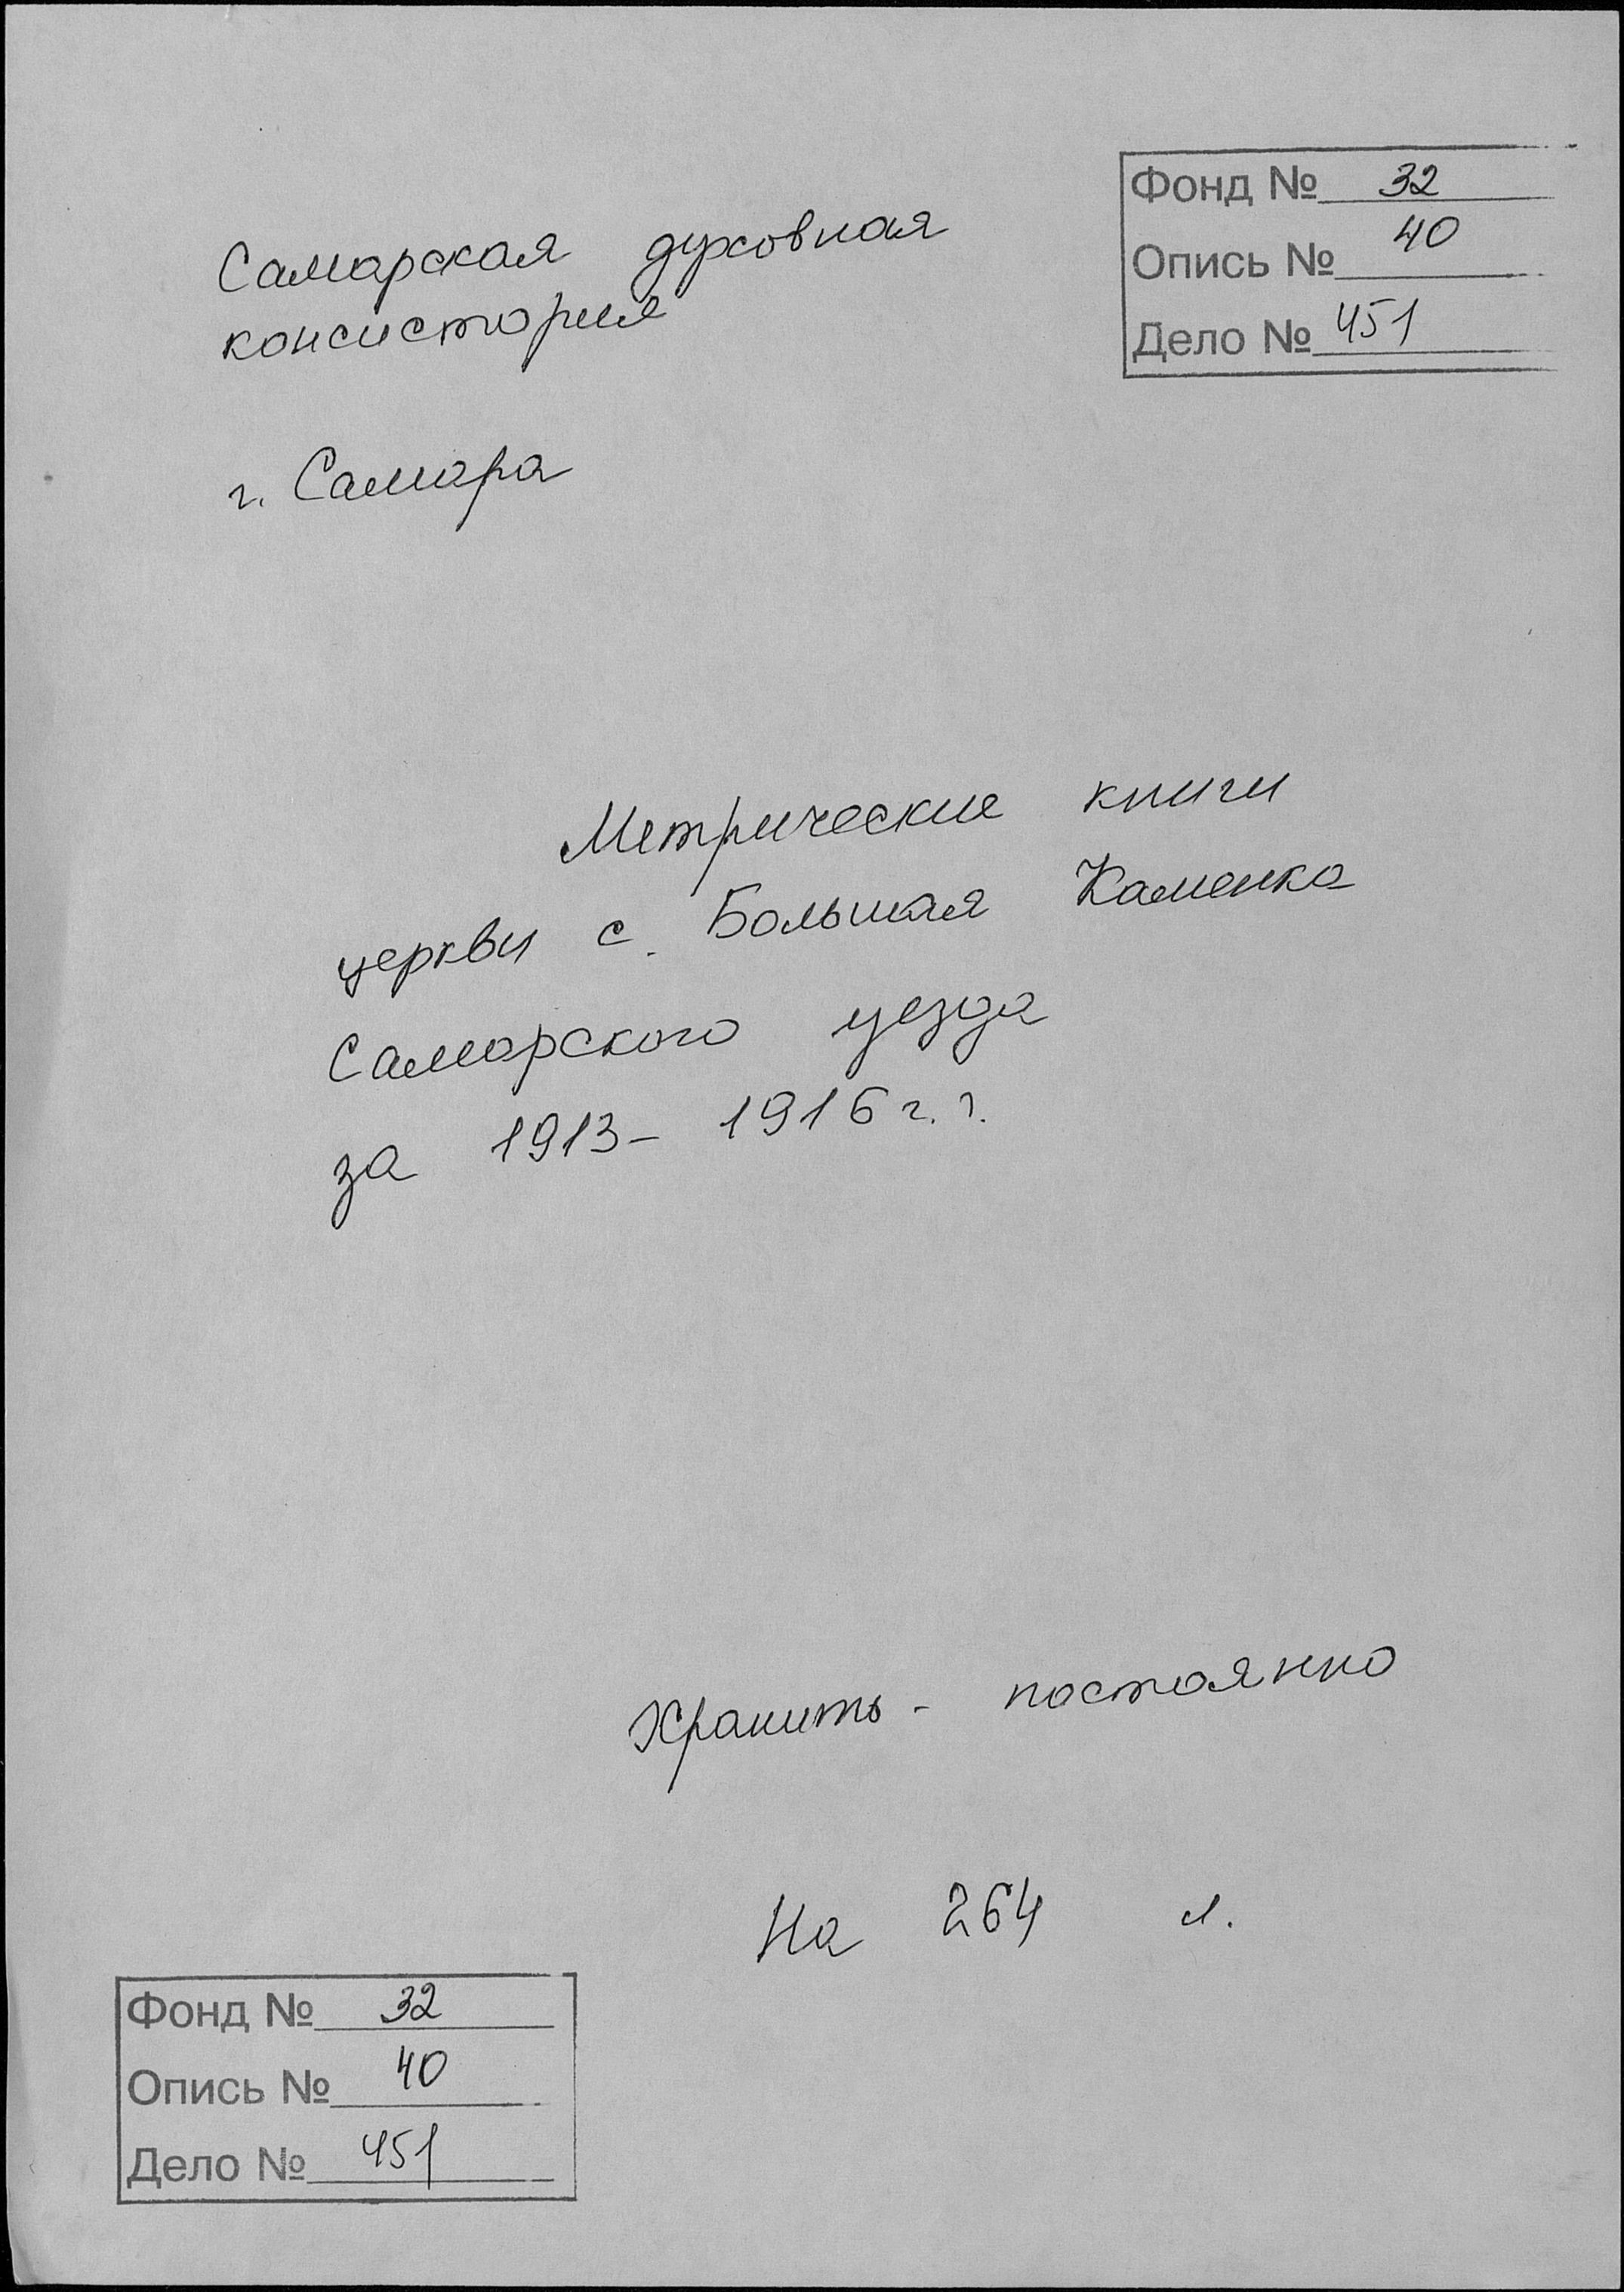 Фонд № 32
Опись № 40
Дело № 451
Самарская духовная
консистория
г. Самара
Метрические книги
церкви с. Большая Каменка
Самарского уезда
за 1913- 1916 г.г.
Хранить - постоянно
На 264 л.
Фонд № 32
Опись № 40
Дело № 451